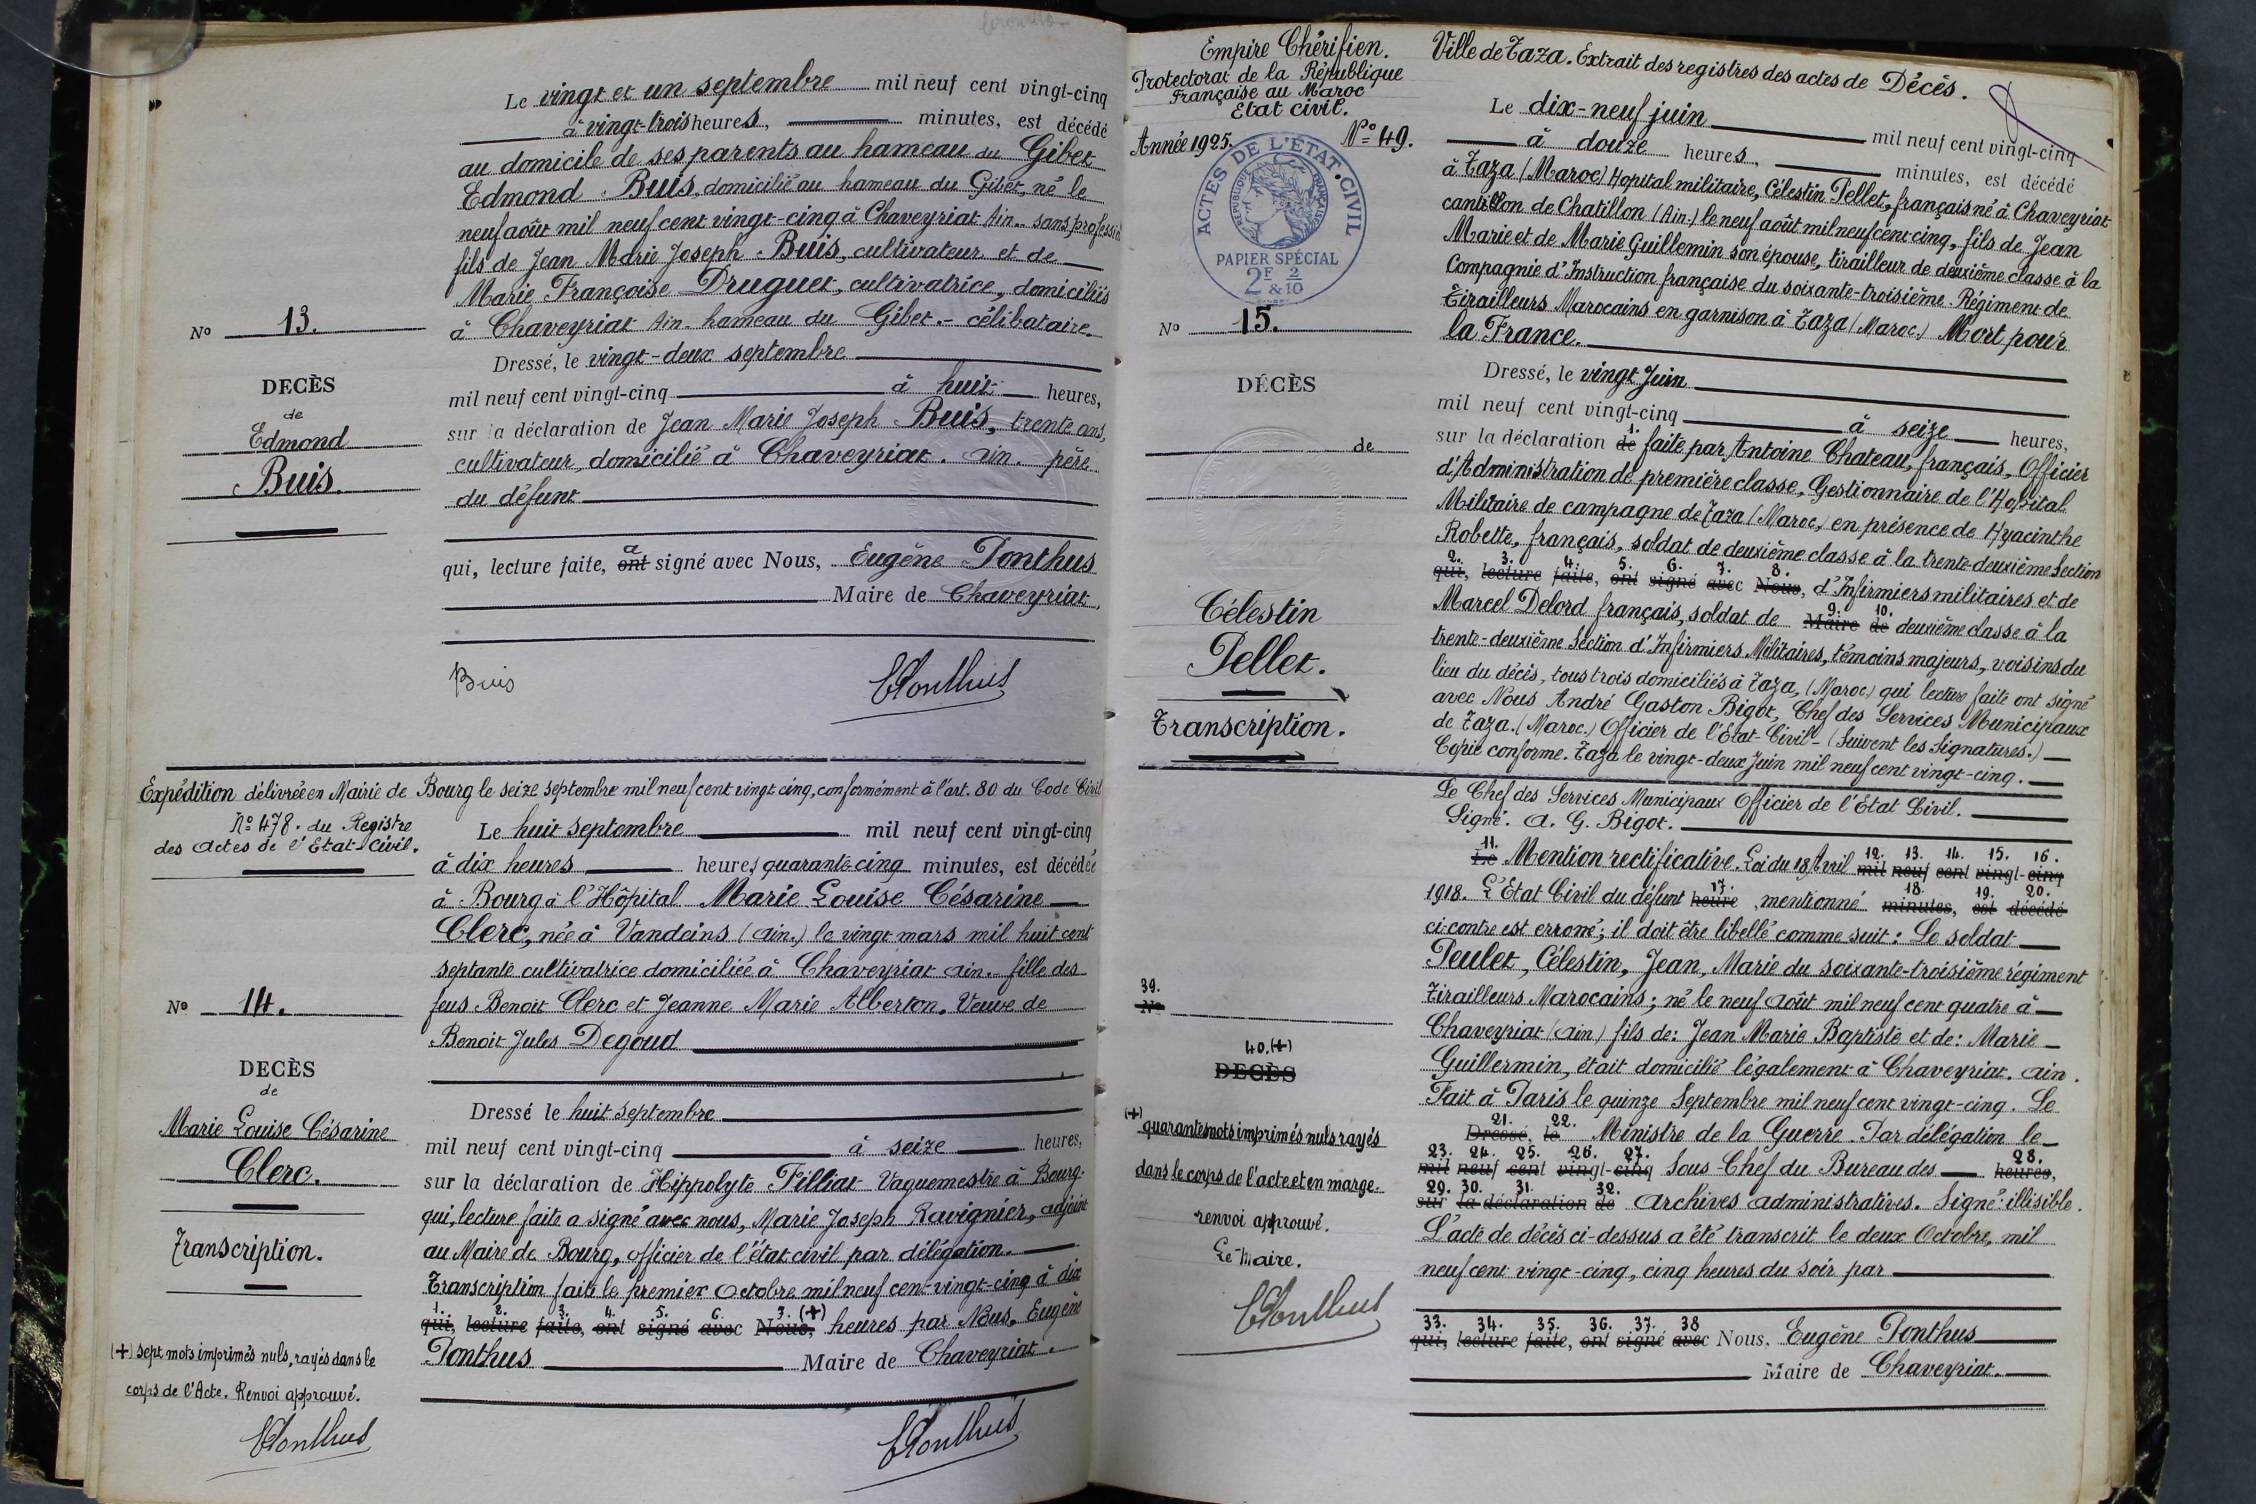 Le vingt et un septembre mil neuf cent vingt-cinq
à vingt-trois heures, minutes, est décédé
au domicile de ses parents au hameau du Gibet
Edmond Buis, domicilié au hameau du Gibet, né le
neuf août mil neuf cent vingt-cinq à Chaveyriat Ain. sans profession
fils de Jean Marie Joseph Buis, cultivateur et de
Marie Françoise Druguet, cultivatrice, domiciliés
à Chaveyriat Ain. hameau du Gibet. - célibataire.
No 13.
DECÈS
de
Edmond
Buis.
Dressé, le vingt-deux septembre
mil neuf cent vingt-cinq à huit heures,
sur la déclaration de Jean Marie Joseph Buis, trente ans,
cultivateur, domicilié à Chaveyriat. Ain. père
du défunt
a
qui, lecture faite, ont signé avec Nous, Eugène Ponthus
Maire de Chaveyriat,
Buis
EPonthus
Expédition délivrée en Mairie de Bourg le seize septembre mil neuf cent vingt cinq, conformément à l'art. 80 du Code Civil
No 478. du Registre
des Actes de l'Etat-Civil.
Le huit septembre mil neuf cent vingt-cinq
à dix heures heures quarante cinq minutes, est décédée
à Bourg à l'Hôpital Marie Louise Césarine
Clerc, née à Vandeins (Ain.) le vingt mars mil huit cent
septante cultivatrice domiciliée à Chaveyriat Ain. - fille des
feus Benoit Clerc et Jeanne Marie Alberton. Veuve de
Benoit Jules Degoud
No 14.
DECÈS
de
Marie Louise Césarine
Clerc.
Transcription.
Dressé le huit septembre
mil neuf cent vingt-cinq à seize heures,
sur la déclaration de Hippolyte Filliat Vaguemestre à Bourg.
qui, lecture faite a signé avec nous, Marie Joseph Ravignier, adjoint
au Maire de Bourg, officier de l'état civil par délégation.
Transcription faite le premier Octobre mil neuf cent vingt-cinq à dix
1. 2. 3. 4. 5. 6. 7. (+)
qui, lecture faite, ont signé avec Nous, heures par Nous, Eugène
Ponthus Maire de Chaveyriat.
(+) sept mots imprimés nuls, rayés dans le
corps de l'Acte. Renvoi approuvé.
EPonthus
EPonthus
Empire Chérifien.
Protectorat de la République
Française au Maroc
Etat civil.
Année 1925. No 49.
ACTES DE L'ETAT-CIVIL
REPUBLIQUE FRANÇAISE
PAPIER SPÉCIAL
2F & 2/10
No 15.
DÉCÈS
de
Célestin
Pellet.
Transcription.
Ville de Taza. Extrait des registres des actes de Décès.
Le dix-neuf juin mil neuf cent vingt-cinq
à douze heures, minutes, est décédé
à Taza (Maroc) Hopital militaire, Célestin Pellet, français né à Chaveyriat
canton de Chatillon (Ain.) le neuf août mil neuf cent cinq, fils de Jean
Marie et de Marie Guillemin son épouse, tirailleur de deuxième classe à la
Compagnie d'Instruction française du soixante-troisième Régiment de
Tirailleurs Marocains en garnison à Taza (Maroc.) Mort pour
la France.
Dressé, le vingt Juin
mil neuf cent vingt-cinq à seize heures,
1.
sur la déclaration de faite par Antoine Chateau, français, Officier
d'Administration de première classe, Gestionnaire de l'Hopital
Militaire de campagne de Taza (Maroc,) en présence de Hyacinthe
Robette, français, soldat de deuxième classe à la trente-deuxième Section
2. 3. 4. 5. 6. 7. 8.
qui, lecture faite, ont signé avec Nous, d'Infirmiers militaires et de
9. 10.
Marcel Delord français, soldat de Maire de deuxième classe à la
trente-deuxième Section d'Infirmiers Militaires, témoins majeurs, voisins du
lieu du décès, tous trois domiciliés à Taza, (Maroc) qui lecture faite ont signé
avec Nous André Gaston Bigot, Chef des Services Municipaux
de Taza. (Maroc.) Officier de l'Etat-Civil - (Suivent les Signatures.)
Copie conforme. Taza le vingt-deux Juin mil neuf cent vingt-cinq.
Le Chef des Services Municipaux Officier de l'Etat Civil.
Signé. A. G. Bigot.
11. 12. 13. 14. 15. 16.
Le Mention rectificative. Loi du 18 Avril mil neuf cent vingt-cinq
17. 18. 19. 20.
1918. L'Etat Civil du défunt heure mentionné minutes, est décédé
ci-contre est erroné; il doit être libellé comme suit: Le soldat
Peulet, Célestin, Jean, Marie du soixante-troisième régiment
Tirailleurs Marocains; né le neuf Août mil neuf cent quatre à
Chaveyriat (Ain) fils de: Jean Marie Baptiste et de: Marie
Guillermin, était domicilié légalement à Chaveyriat. Ain.
Fait à Paris le quinze Septembre mil neuf cent vingt-cinq. Le
21. 22.
Dressé, le Ministre de la Guerre. Par délégation le
23. 24. 25. 26. 27. 28.
mil neuf cent vingt-cinq Sous-Chef du Bureau des heures,
29. 30. 31. 32.
sur la déclaration de Archives administratives. Signé: illisible.
L'acte de décès ci-dessus a été transcrit le deux Octobre, mil
neuf cent vingt-cinq, cinq heures du soir par
33. 34. 35. 36. 37. 38
qui, lecture faite, ont signé avec Nous, Eugène Ponthus
Maire de Chaveyriat.
39.
No
40. (+)
DECÈS
(+)
quarante mots imprimés nuls rayés
dans le corps de l'acte et en marge.
renvoi approuvé.
Le Maire.
EPonthus